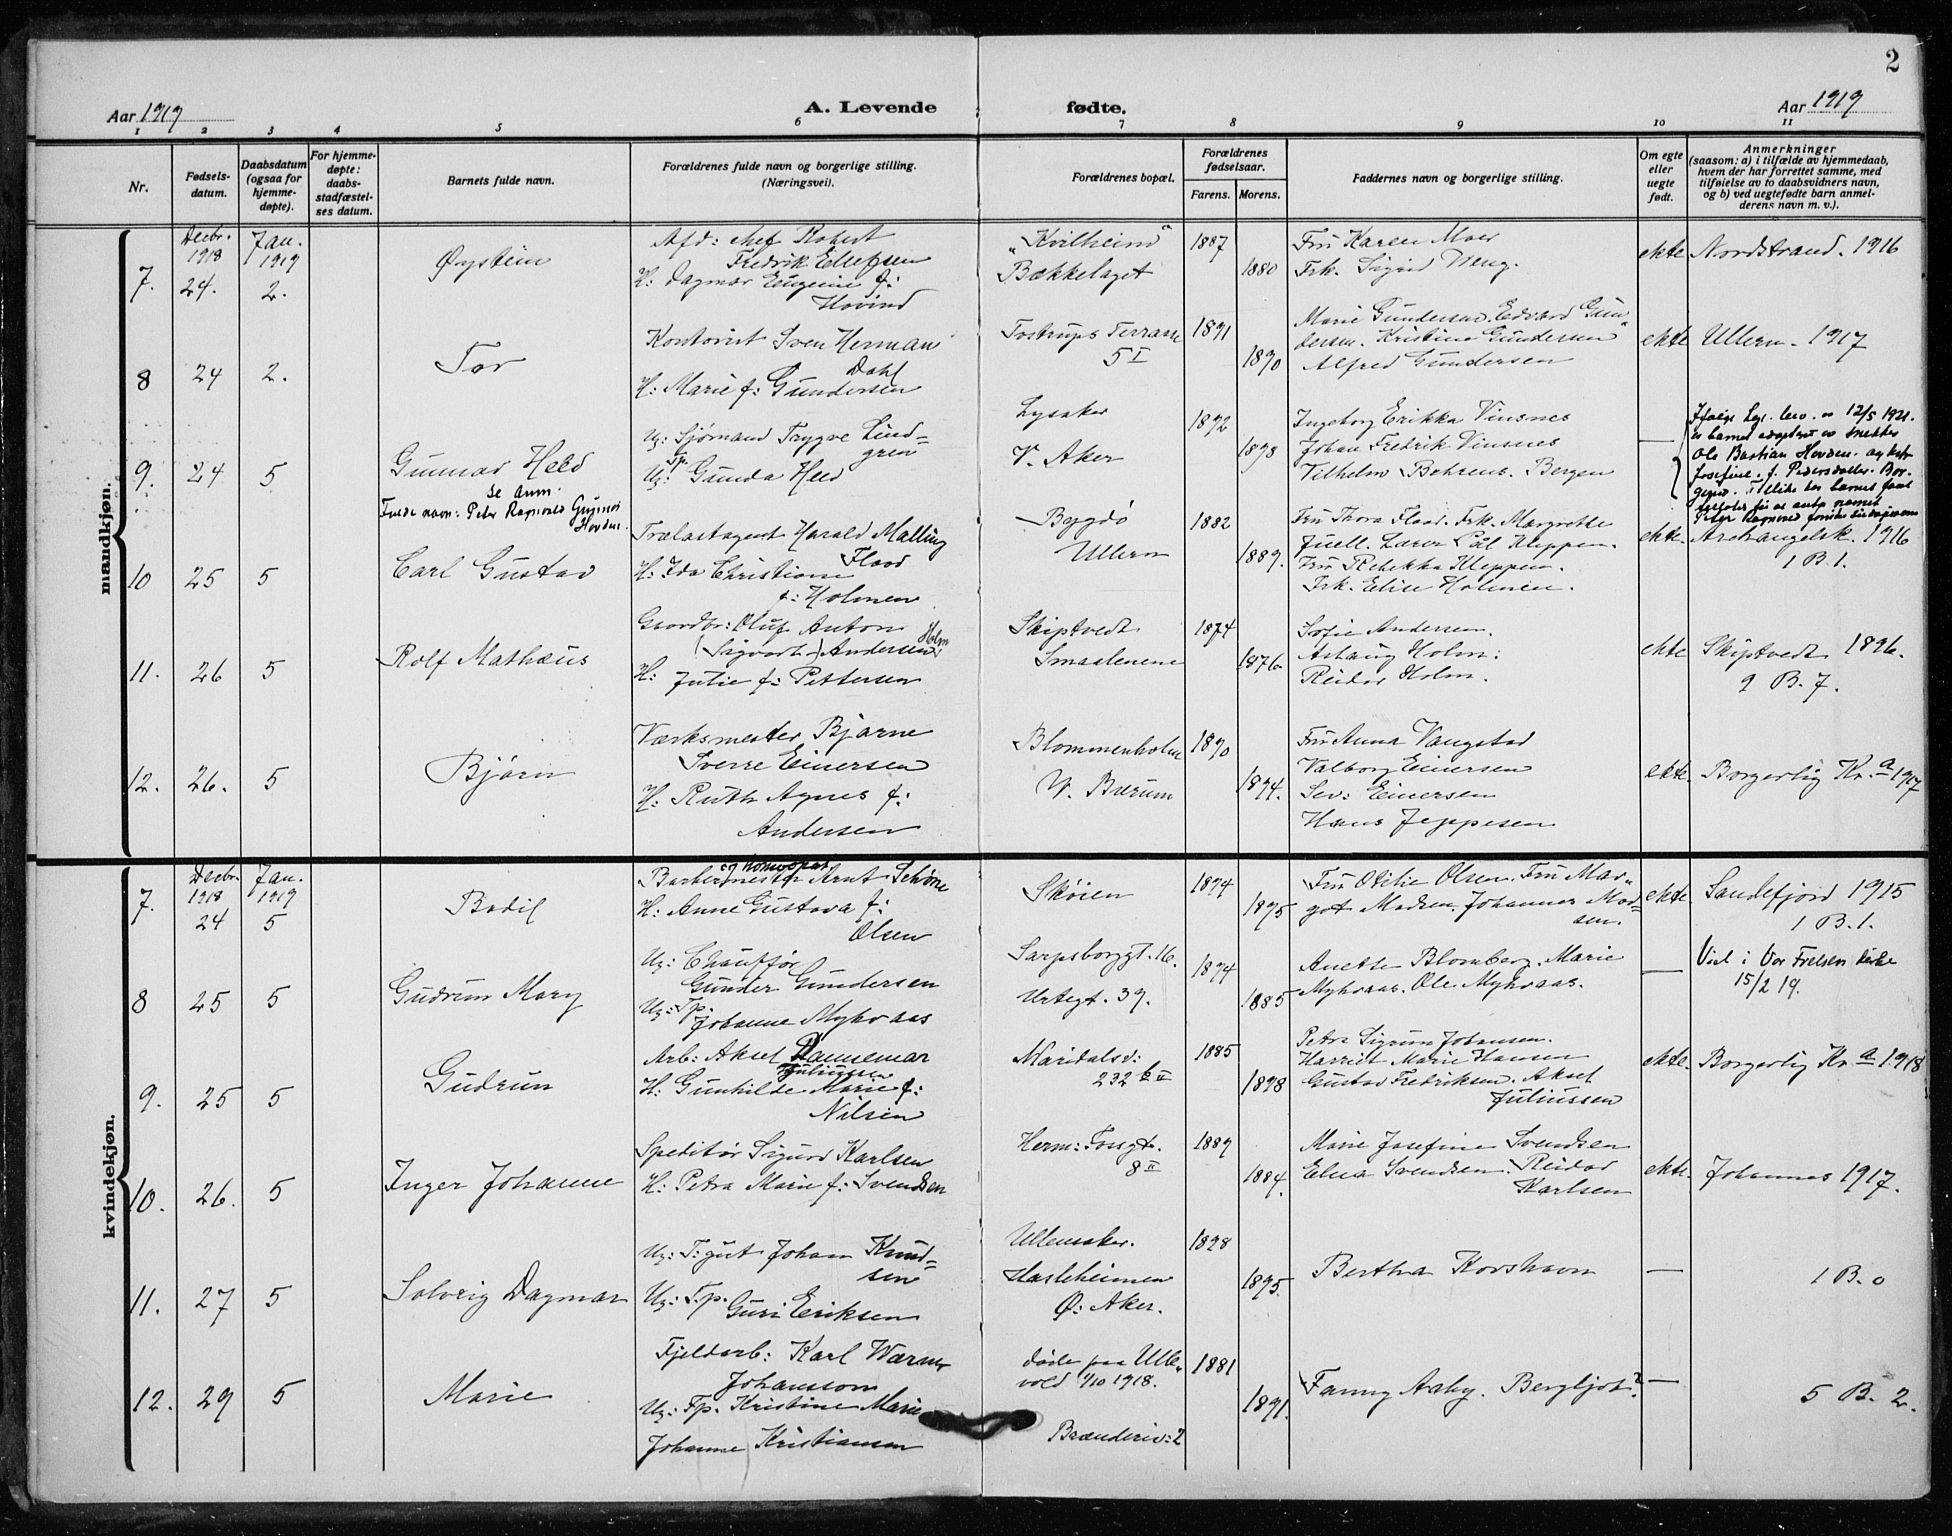 2
Aar 1919
A. Levende fødte.
Aar 1919
1 2 3 4 5 6 7 8 9 10 11
Nr.
Fødsels-
datum.
Daabsdatum
(ogsaa for
hjemme-
døpte).
For hjemme-
døpte:
daabs-
stadfæstel-
ses datum.
Barnets fulde navn.
Forældrenes fulde navn og borgerlige stilling.
(Næringsvei).
Forældrenes bopæl.
Forældrenes
fødselsaar.
Farens. Morens.
Faddernes navn og borgerlige stilling.
Om egte
eller
uegte
født.
Anmerkninger
(saasom: a) i tilfælde av hjemmedaab,
hvem der har forrettet samme, med
tilføielse av to daabsvidners navn,
og b) ved uegtefødte barn anmel-
derens navn m. v.).
mandkjøn.
7.
Decbr.
1918
24.
Jan.
1919
2.
Øystein
Afd: chef Robert
Fredrik Ellefsen
H: Dagmar Eugenie f:
Hovind
"Kvilheim"
Bækkelaget
1887
1880
Fru Karen Moer
Frk. Sigrid Wang.
ekte
Nordstrand. 1916
8
24
2.
Tor
Kontorist Sven Herman
Dahl
H: Marie f: Gundersen
Tostrups Terrasse
5 I
1891
1890
Marie Gundersen. Edvard Gun"
dersen. Kristine Gundersen
Alfred Gundersen
ekte
Ullern. 1917
9.
24
5
Gunnar Held
se anm.
Fulde navn: Peter Ragnvald Gunnar
Hovden.
Ug: Sjømand Trygve Lind=
gren
Ug: Tp. Gunda Held
Lysaker
V. Aker
1892
1898
Ingeborg Erikka Vinsnes
Johan Fredrik Vinsnes
Vilhelm Bohrens. Bergen
—
Ifølge bev. av 12/5 1921.
er barnet adoptert av snekker
Ole Bastian Hovden og hustr.
Josefine f. Pedersdatter. Bor-
10
25
5
Carl Gustav
Trælastagent Harald Malling
Flood
H: Ida Christiane
f: Holmen
Bygdø
Ullern
1882
1889.
Fru Thora Flood. Frk. Margrethe
Juell. Lærer Pål Kleppen.
Fru Rebekka Kleppen.
Frk. Elise Holmen.
ekte.
Archangelsk. 1916
1 B. 1.
11.
26
5
Rolf Mathæus
Gaardbr: Oluf Anton
(Sigvart) Andersen Holm
H: Julie f: Pettersen
Skiptvedt
Smaalenene
1874
1876.
Sofie Andersen.
Aslaug Holm:
Reidar Holm.
ekte
Skiptvedt 1896.
9 B. 7.
12.
26.
5
Bjørn
Værksmester Bjarne
Sverre Einersen
H: Ruth Agnes f:
Andersen
Blommenholm
V. Bærum
1890
1894.
Fru Anna Vangstad
Valborg Einersen
Sev: Einersen
Hans Jeppesen
ekte.
Borgerlig Kr.a 1917
kvindekjøn.
7.
Decbr.
1918
24
Jan.
1919
5
Bodil
og homøopat
Barbermester Arnt Schøne
H: Anne Gustava f:
Olsen
Skøien
1894
1895
Fru Otilie Olsen. Fru Mar"
got Madsen. Johannes Mad=
sen.
ekte
Sandefjord 1915
1 B. 1.
8
25
5
Gudrun Mary
Ug: Chauffør
Gunder Gundersen
Ug: Tp.
Johanne Myhraas
Sarpsborggt. 16.
Urtegt. 39.
1894
1885
Anette Blomberg. Marie
Myhraas. Ole Myhraas.
—
Viel i Vor Frelsers kirke
15/2 19.
9.
25
5
Gudrun
Arb: Aksel Dannemar
Juliussen
H: Gunhilde Marie f:
Nilsen
Maridalsv:
232 b II
1885
1898
Petra Sigrun Johansen.
Harriet Marie Hansen
Gustav Fredriksen. Aksel
Juliussen
ekte.
Borgerlig Kr.a 1918
10.
26.
5
Inger Johanne
Speditør Sigurd Karlsen
H: Petra Marie f: Svendsen
Herm: Fossgt.
8 II
1889
1884.
Marie Josefine Svendsen
Elna Svendsen. Reidar
Karlsen
ekte.
Johannes 1917.
11.
27
5
Solveig Dagmar
Ug: T: gut Johan Knud=
sen
Ug: T.p.
Guri Eriksen
Ullensaker.
Hasleheimen
Ø: Aker.
1898
1895.
Bertha Korshavn
—
1 B. 0
12.
29
5
Marie
Fjeldarb: Karl Warner
Johansson
Ug: Tp. Kristine Marie
Johanne Kristiansen
døde paa Ulle"
vold 1/10 1918.
Brænderiv: 2
1881
1891.
Fanny Aaby. Bergljot?
—
5 B. 2.